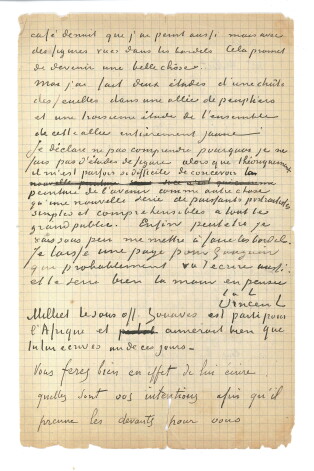 café de nuit que j'ai peint aussi mais avec
des figures vues dans les bordels. Cela promet
de devenir une belle chose.
Moi j'ai fait deux études d'une chûte
des feuilles dans une allée de peupliers
et une troisieme étude de l'ensemble
de cette allée entièrement jaune.
Je déclare ne pas comprendre pourquoi je ne
fais pas d'études de figure alors que théoriquement
il m'est parfois si difficile de concevoir la
peinture de l'avenir comme autre chose
qu'une nouvelle série de puissants portraitistes
simples et comprehensibles à tout le
grand public. Enfin peut être je
vais sous peu me mettre à faire les bordels.
Je laisse une page pour Gauguin
qui probablement va t'écrire aussi
et te serre bien la main en pensée
t. à t.
Vincent
Milliet le sous off. Zouaves est parti pour
l'Afrique et aimerait bien que
tu lui ecrives un de ces jours.
Vous ferez bien en effet de lui ecrire
quelles sont vos intentions afin qu'il
prenne les devants pour vous